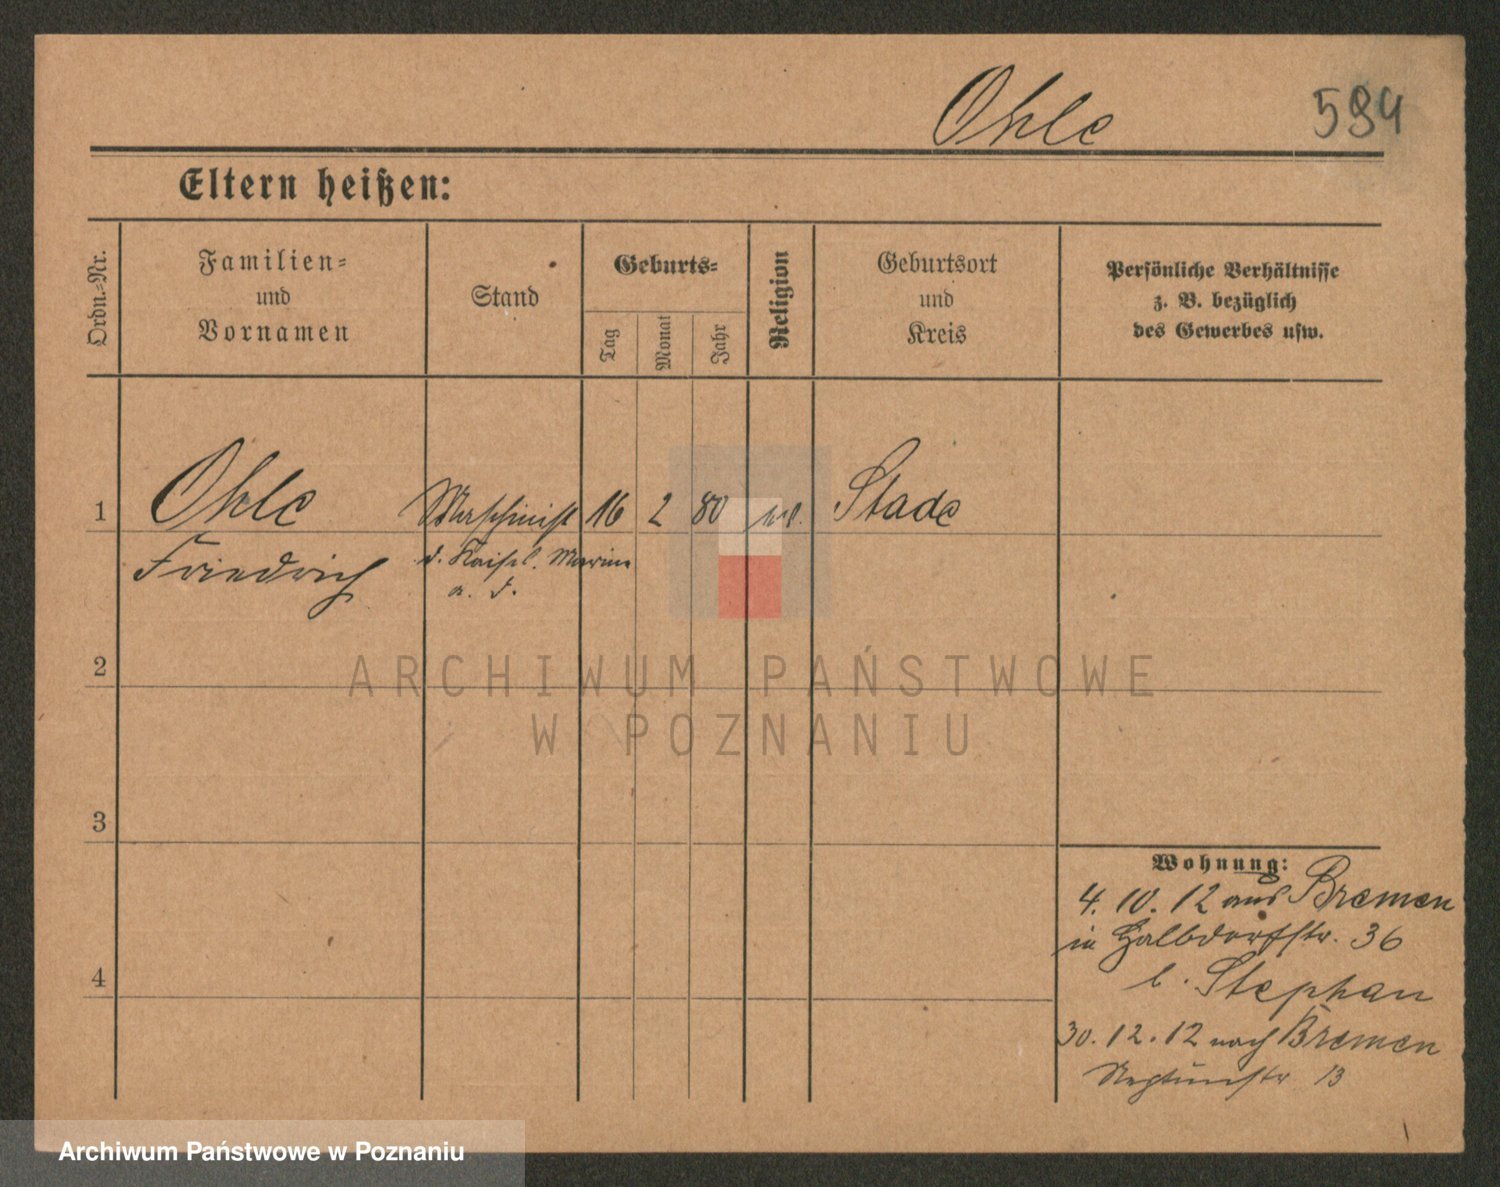 Ohle
584
Eltern heißen:
Ordn.-Nr.
Familien-
und
Vornamen
Stand
Geburts-
Tag
Monat
Jahr
Religion
Geburtsort
und
Kreis
Persönliche Verhältnisse
z. B. bezüglich
des Gewerbes usw.
1 Ohle Maschinist 16 2 80 Stade
Friedrich d. Kaiserl. Marine
a. D.
2
3
4
Wohnung:
4. 10. 12 aus Bremen
in Halbdorfstr. 36
b. Stephan
30. 12. 12 nach Bremen
Neptunstr 13
ARCHIWUM PAŃSTWOWE
W POZNANIU
Archiwum Państwowe w Poznaniu